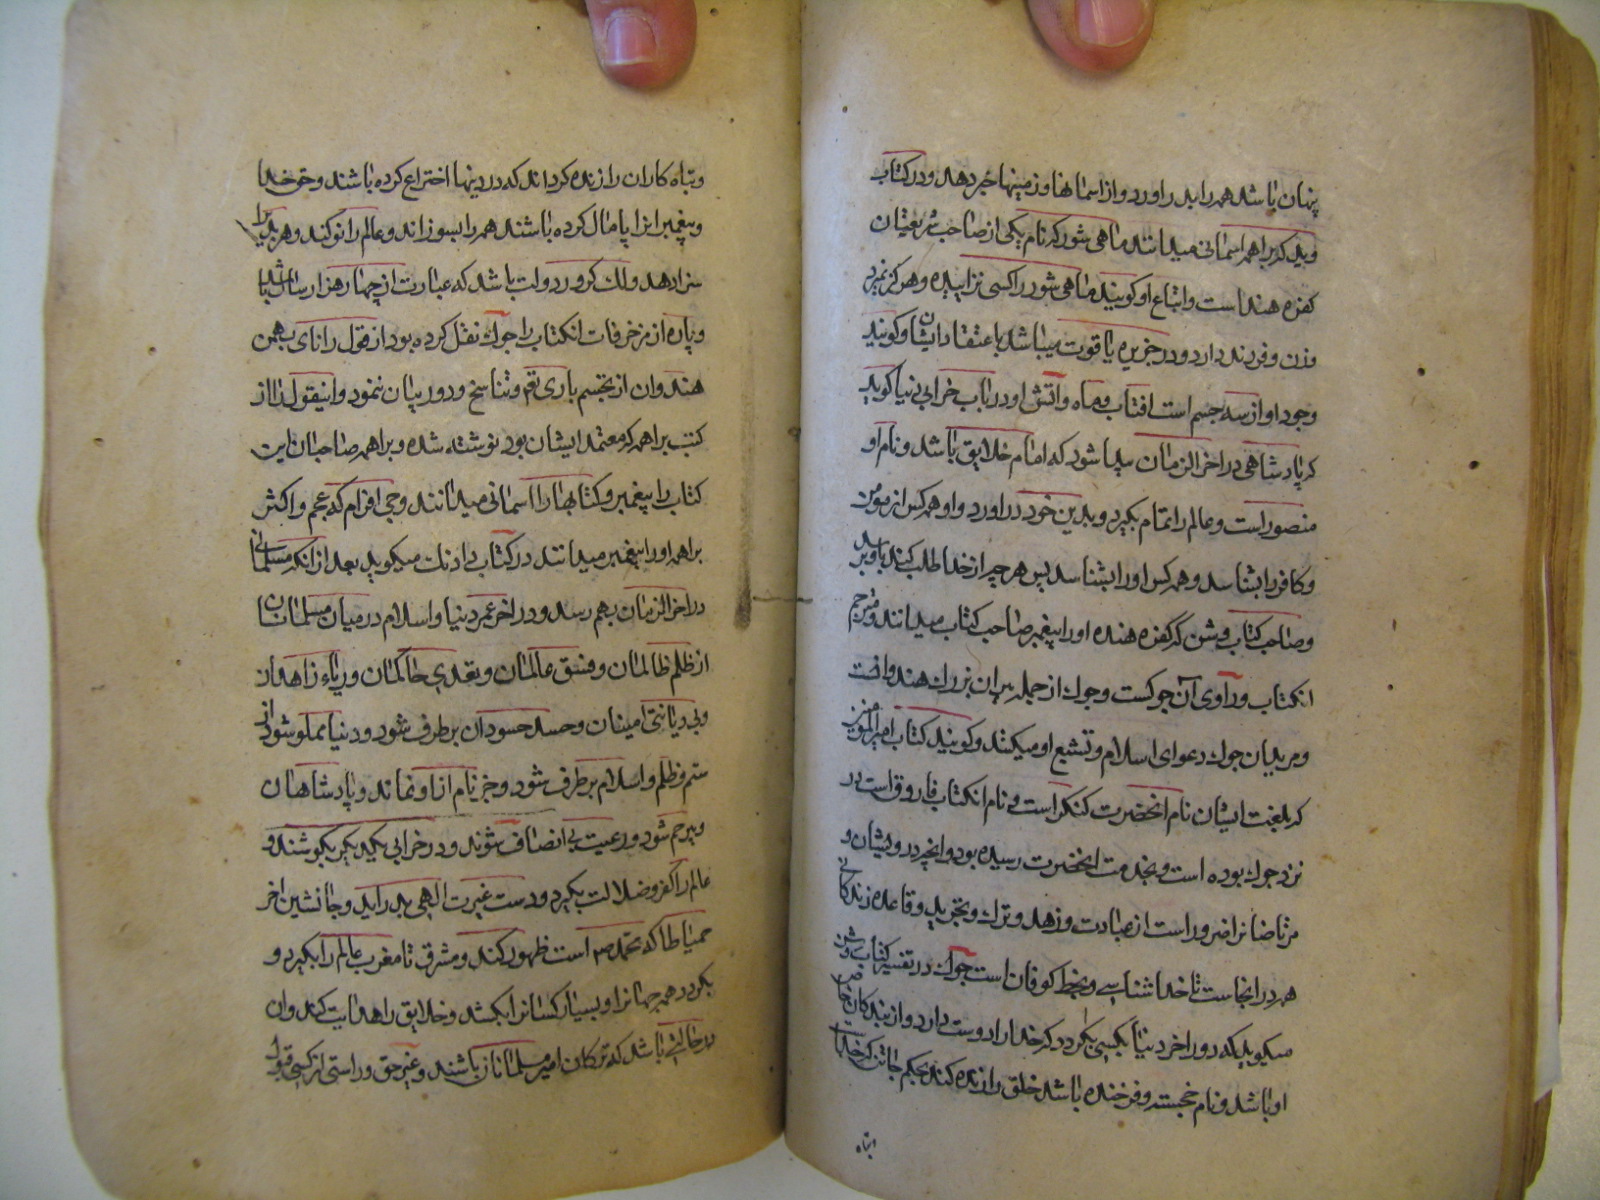 پنهان باشد همه را بدر آورد و از اسمانها و زمینها خبر دهد و در کتاب
وید که براهمه اسمانی میدانند ماهی شور که نام یکی از صاحب شریعتان
کفره هند است و اتباع او کویند ماهی شور را کسی نزاییده و هرکز نمیرد
و زن و فرزند دارد و در جزیره یاقوت میباشد باعتقاد ایشان و کویند
وجود او از سه جسم است افتاب و ماه و اتش او در باب خرابی دنیا کوید
که پادشاهی در اخر الزمان پیدا شود که امام خلایق باشد و نام او
منصور است و عالم را تمام بکیرد و بدین خود در اورد و او همه کس از مومن
و کافر را بشناسد و همه کس او را بشناسد پس هر چه از خدا طلب کند باو برسد
و صاحب کتاب وشن که کفره هنده او را پیغمبر صاحب کتاب میدانند و مترجم
انکتاب و راوی آن جوکست و جوك از جمله پیران بزرك هند و انست
و مریدان جوك دعوای اسلام و تشیع او میکنند و کویند کتاب امیرالمومنین
که بلغت ایشان نام انحضرت کنکر است و نام انکتاب فاروق است در
نزد جوك بوده است و بخدمت انحضرت رسیده بود و انچه درویشان و
مرتاضانرا ضرور است از عبادت و زهد و ترك و تجرید و قاعده زندکانی
همه در انجاست تا خداشناسی و بخط کوفان است جوك در تفسیر کتاب وشن
میکوید که دور اخر دنیا بکسی بکردد که خدا را دوست دارد و از بندکان خاص
او باشد و نام خجسته و فرخنده باشد خلق را زنده کند بحکم
و تباه کاران را زنده کرداند که در دینها اختراع کرده باشند و حق خدا
و پیغمبر انرا پامال کرده باشند همه را بسوزاند و عالم را نو کند و هر بدیرا
سزا دهد و لك کرور دولت باشد که عبارت از چهار هزار سال باشد
و پاره از مزخرفات انکتاب را جوك نقل کرده بود از قول رانای برهمن
هندوان از تجسم باری تع و تناسخ و دور بیان نمود و اینقول را از
کتب براهمه که معتمد ایشان بود نوشته شده و براهمه صاحبان این
کتاب را پیغمبر و کتابها را اسمانی میدانند و جی افرام که عجم و اکثر
براهمه او را پیغمبر میدانند در کتاب دادنك میکوید بعد از انکه مسلمانی
در اخر الزمان بهم رسد و در اخر عمر دنیا و اسلام در میان مسلمانان
از ظلم ظالمان و فسق عالمان و تعدی حاکمان و ریاء زاهدان
و بی دیانتی امینان و حسد حسودان بر طرف شود و دنیا مملو شود از
ستم و ظلم و اسلام بر طرف شود و جز نام از او نماند و پادشاهان
و بیرحم شود و رعیت بی انصاف شوند و در خرابی یکدیکر بکوشند و
عالم را کفر و ضلالت بکیرد و دست غیرت الهی بدر اید و جانشین اخر
ممیاطا که محمد ص است ظهور کند و مشرق تا مغرب عالم را بکیرد و
بکردد همه جهانرا و بسیار کسانرا بکشد و خلایق را هدایت کند و ان
در حالتی باشد که ترکان امیر مسلمانان باشند و غیر حق و راستی از کسی قبول